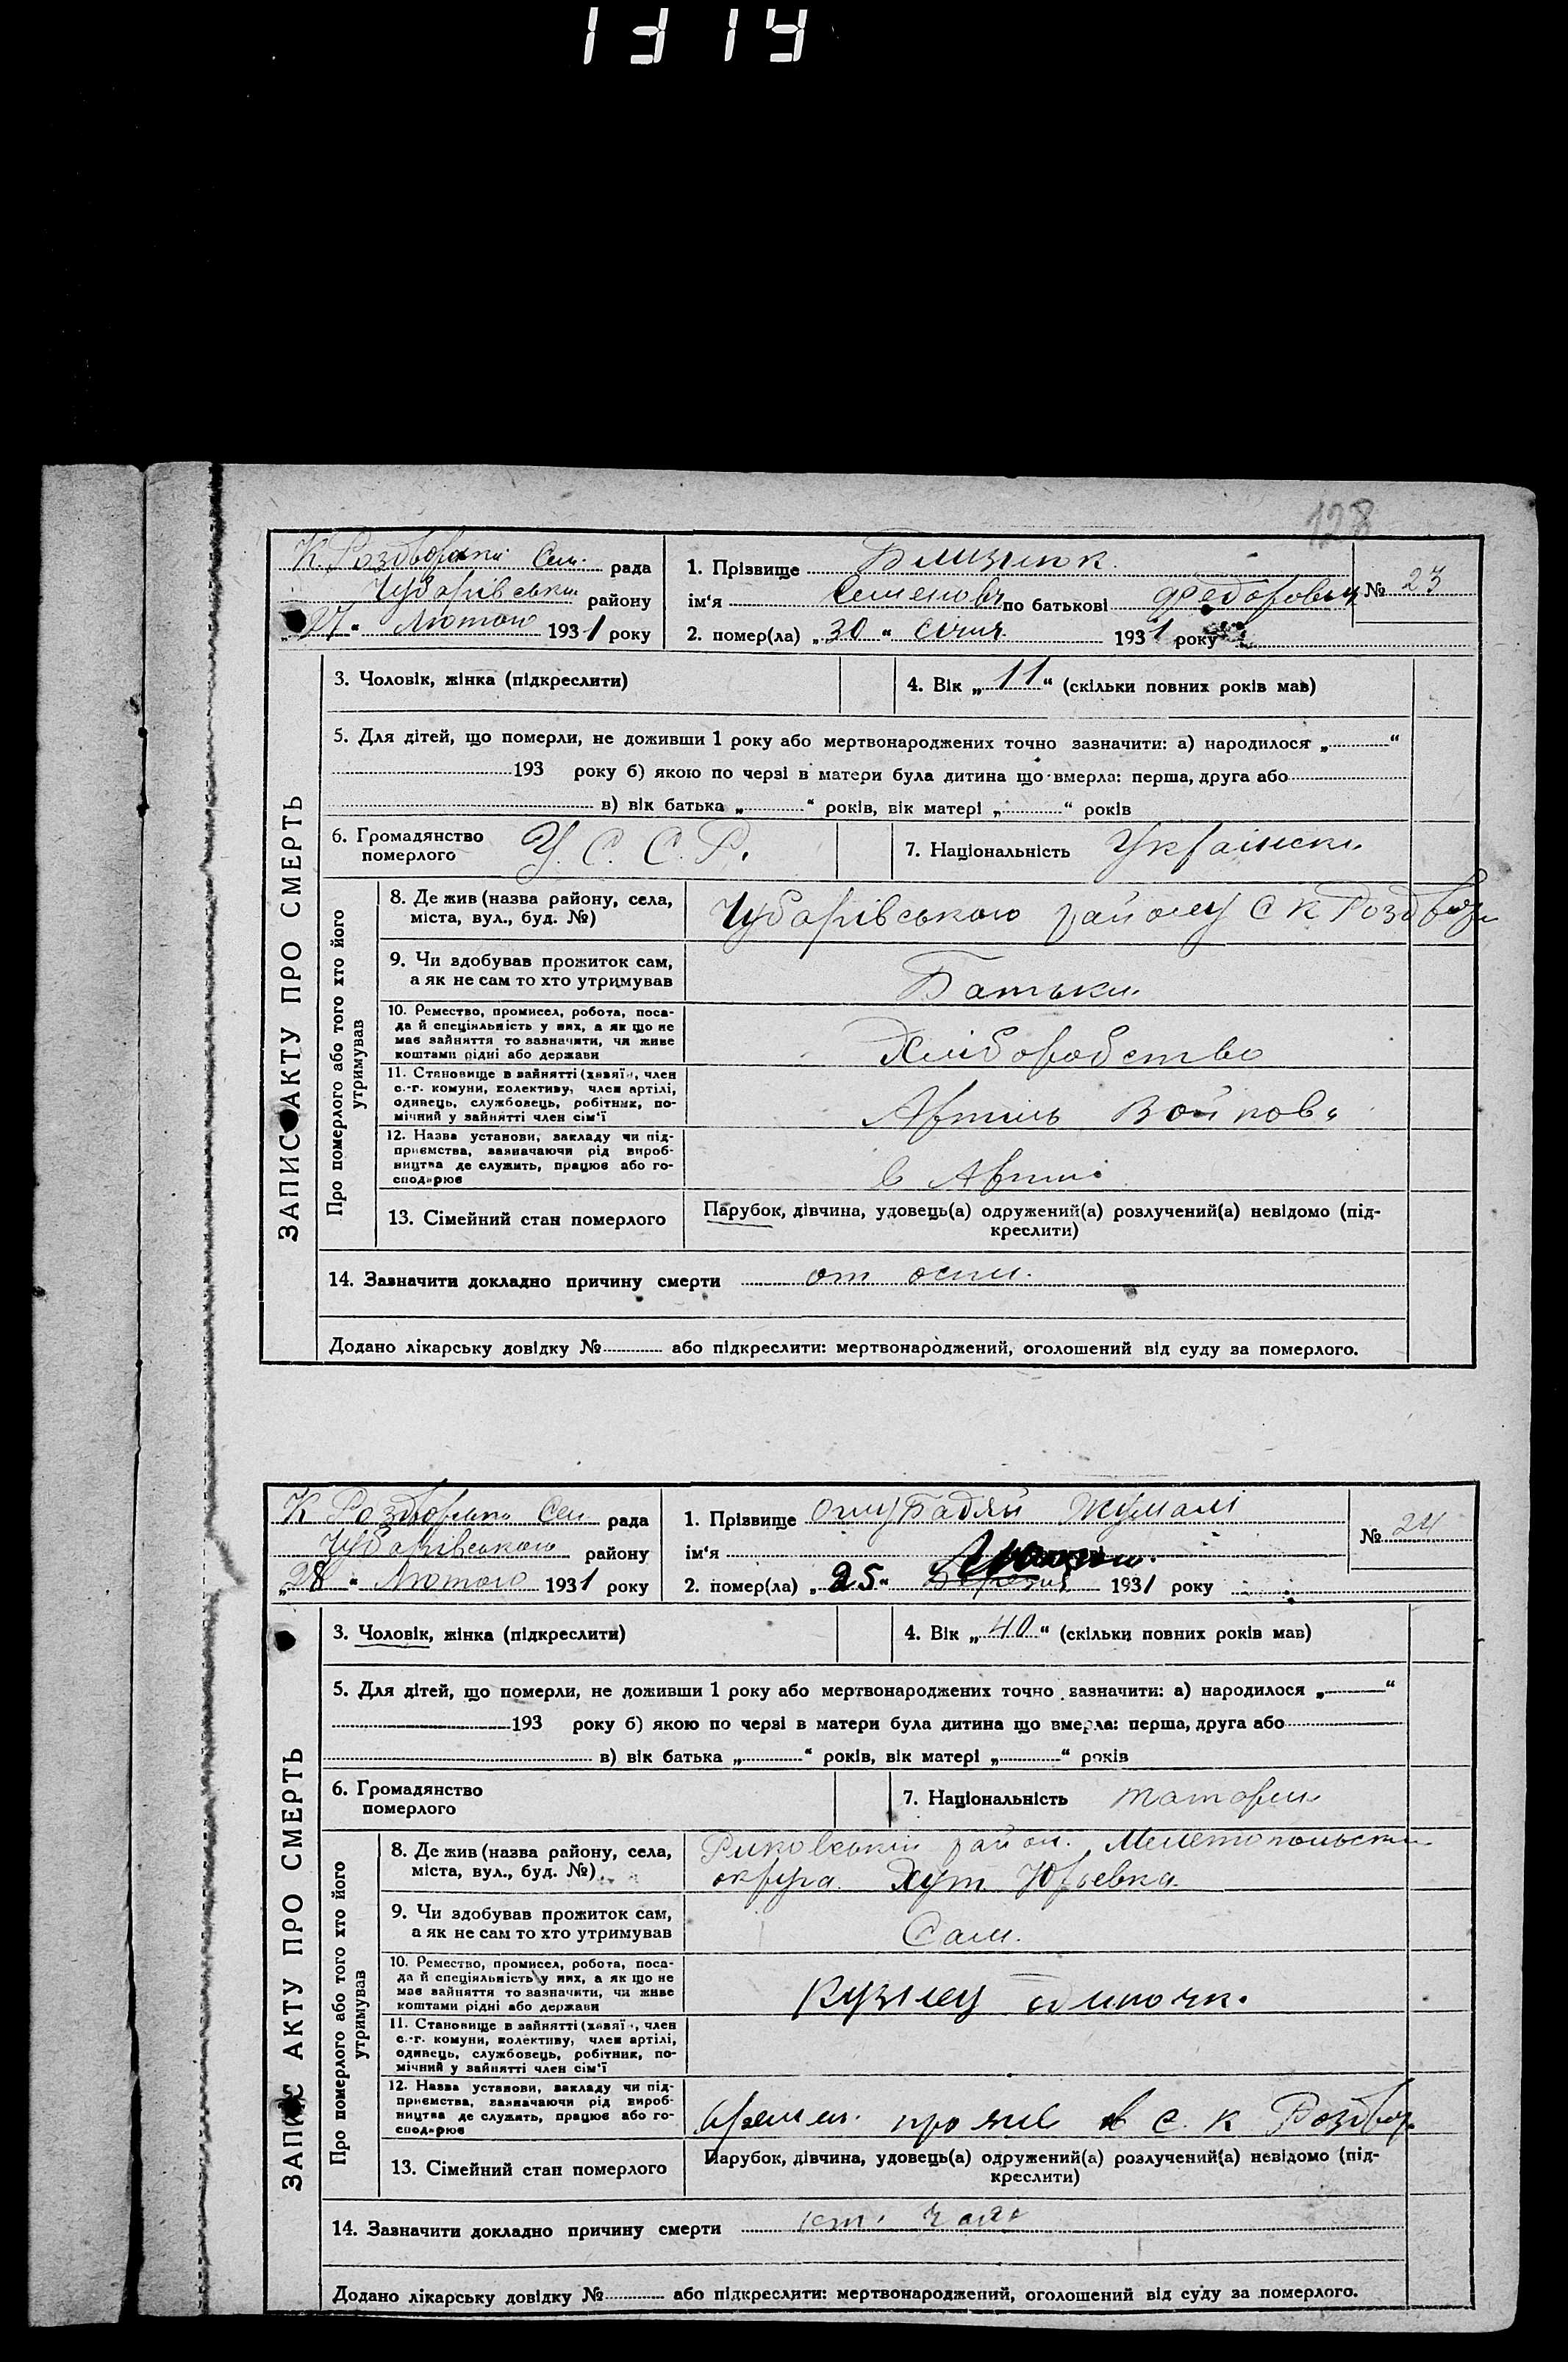 1314
128
К. Роздори Сел. рада
Чубарівськ району
„27“ Лютого 1931 року
1. Прізвище Близнюк
ім‘я Семенов по батькові Федорович
№ 23
2. помер(ла) „30“ Січня 1931 року
ЗАПИС АКТУ ПРО СМЕРТЬ
3. Чоловік, жінка (підкреслити)
4. Вік „11“ (скільки повних років мав)
5. Для дітей, що померли, не доживши 1 року або мертвонароджених точно зазначити: а) народилося „ “
193 року б) якою по черзі в матери була дитина що вмерла: перша, друга або
в) вік батька „ “ років, вік матері „ “ років
6. Громадянство
померлого
У. С. С. Р.
7. Національність Українськ
Про померлого або того хто його
утримував
8. Де жив (назва району, села,
міста, вул., буд. №)
Чубарівського району С К
9. Чи здобував прожиток сам,
а як не сам то хто утримував
Батьки
10. Ремество, промисел, робота, поса-
да й спеціяльність у них, а як що не
має зайняття то зазначити, чи живе
коштами рідні або держави
Хліборобство
11. Становище в зайнятті (хазяїн, член
с.-г. комуни, колективу, член артілі,
одинець, службовець, робітник, по-
мічний у зайнятті член сім‘ї
Артиль Войкова
12. Назва установи, закладу чи під-
приємства, зазначаючи рід вироб-
ництва де служить, працює або го-
сподарює
в Артилі
13. Сімейний стан померлого
Парубок, дівчина, удовець(а) одружений(а) розлучений(а) невідомо (під-
креслити)
14. Зазначити докладно причину смерти от оспи.
Додано лікарську довідку № або підкреслити: мертвонароджений, оголошений від суду за померлого.
К Сел рада
Чубарівського району
„28“ Лютого 1931 року
1. Прізвище Жумалі
ім‘я
№ 24
2. помер(ла) „25“ 1931 року
ЗАПИС АКТУ ПРО СМЕРТЬ
3. Чоловік, жінка (підкреслити)
4. Вік „40“ (скільки повних років мав)
5. Для дітей, що померли, не доживши 1 року або мертвонароджених точно зазначити: а) народилося „ “
193 року б) якою по черзі в матери була дитина що вмерла: перша, друга або
в) вік батька „ “ років, вік матері „ “ років
6. Громадянство
померлого
7. Національність татарин
Про померлого або того хто його
утримував
8. Де жив (назва району, села,
міста, вул., буд. №)
Риковський район. Мелетопольськ
округа Хут. Юрьевка
9. Чи здобував прожиток сам,
а як не сам то хто утримував
Сам.
10. Ремество, промисел, робота, поса-
да й спеціяльність у них, а як що не
має зайняття то зазначити, чи живе
коштами рідні або держави
11. Становище в зайнятті (хазяїн, член
с.-г. комуни, колективу, член артілі,
одинець, службовець, робітник, по-
мічний у зайнятті член сім‘ї
12. Назва установи, закладу чи під-
приємства, зазначаючи рід вироб-
ництва де служить, працює або го-
сподарює
в с. К
13. Сімейний стан померлого
Парубок, дівчина, удовець(а) одружений(а) розлучений(а) невідомо (під-
креслити)
14. Зазначити докладно причину смерти
Додано лікарську довідку № або підкреслити: мертвонароджений, оголошений від суду за померлого.